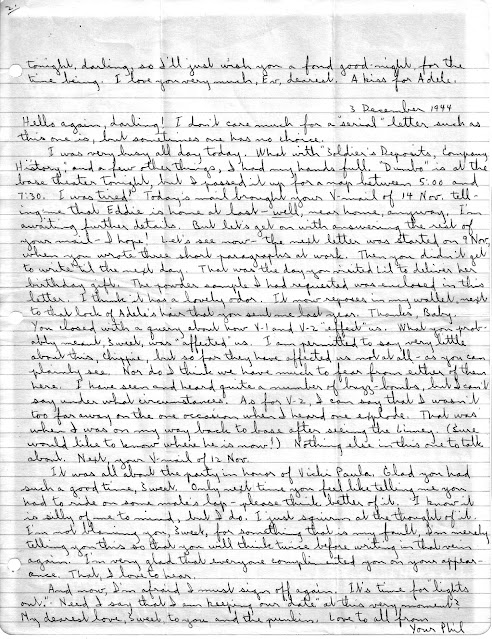 2.
tonight, darling, so I'll just wish you a fond good-night, for the
time being. I love you very much, Ev, dearest. A kiss for Adele.
3 December 1944
Hello again, darling! I don't care much for a "serial" letter such as
this one is, but sometimes one has no choice.
I was very busy all day today. What with "Soldier's Deposits, Company
History, and a few other things, I had my hands full. "Dumbo" is at the
base theater tonight, but I passed it up for a nap between 5:00 and
7:30. I was tired! Today's mail brought your V-mail of 14 Nov. tell-
ing me that Eddie is home at last - well, near home, anyway. I'm
awaiting further details. But let's get on with answering the rest of
your mail - I hope! Let's see now - the next letter was started on 9 Nov,
when you wrote three short paragraphs at work. Then you didn't get
to write 'til the next day. That was the day you visited to deliver her
birthday gift. The powder sample I had requested was enclosed in this
letter. I think it has a lovely odor. It now reposes in my wallet, next
to that lock of Adele's hair that you sent me last year. Thanks, Baby.
You closed with a query about how V-1 and V-2 "effect" us. What you prob-
ably meant, Sweet, was "affected" us. I am permitted to say very little
about this, Chippie, but so far they have affected us not at all - as you can
plainly see. Nor do I think we have much to fear from either of them
here. I have seen and heard quite a number of buzz-bombs, but I can't
say under what circumstances. As for V-2, I can say that I wasn't
too far away on the one occasion when I heard one explode. That was
when I was on my way back to base after seeing the Limey. (Sure
would like to know where he is now!) Nothing else in this one to talk
about. Next, your V-mail of 12 Nov.
It was all about the party in honor of Vicki Paula. Glad you had
such a good time, Sweet. Only next time you feel like telling me you
had to ride on some male's lap - please think better of it. I know it
is silly of me to mind, but I do. I just squirm at the thought of it.
I'm not blaming you, Sweet, for something that is my fault, I'm merely
telling you this so that you will think twice before writing in that vein
again. I'm very glad that everyone complimented you on your appear-
ance. That, I love to hear.
And now, I'm afraid I must sign off again. It's time for "lights
out." Need I say that I am keeping our date at this very moment?
My dearest love, Sweet, to you and the punkin. Love to all from
Your Phil